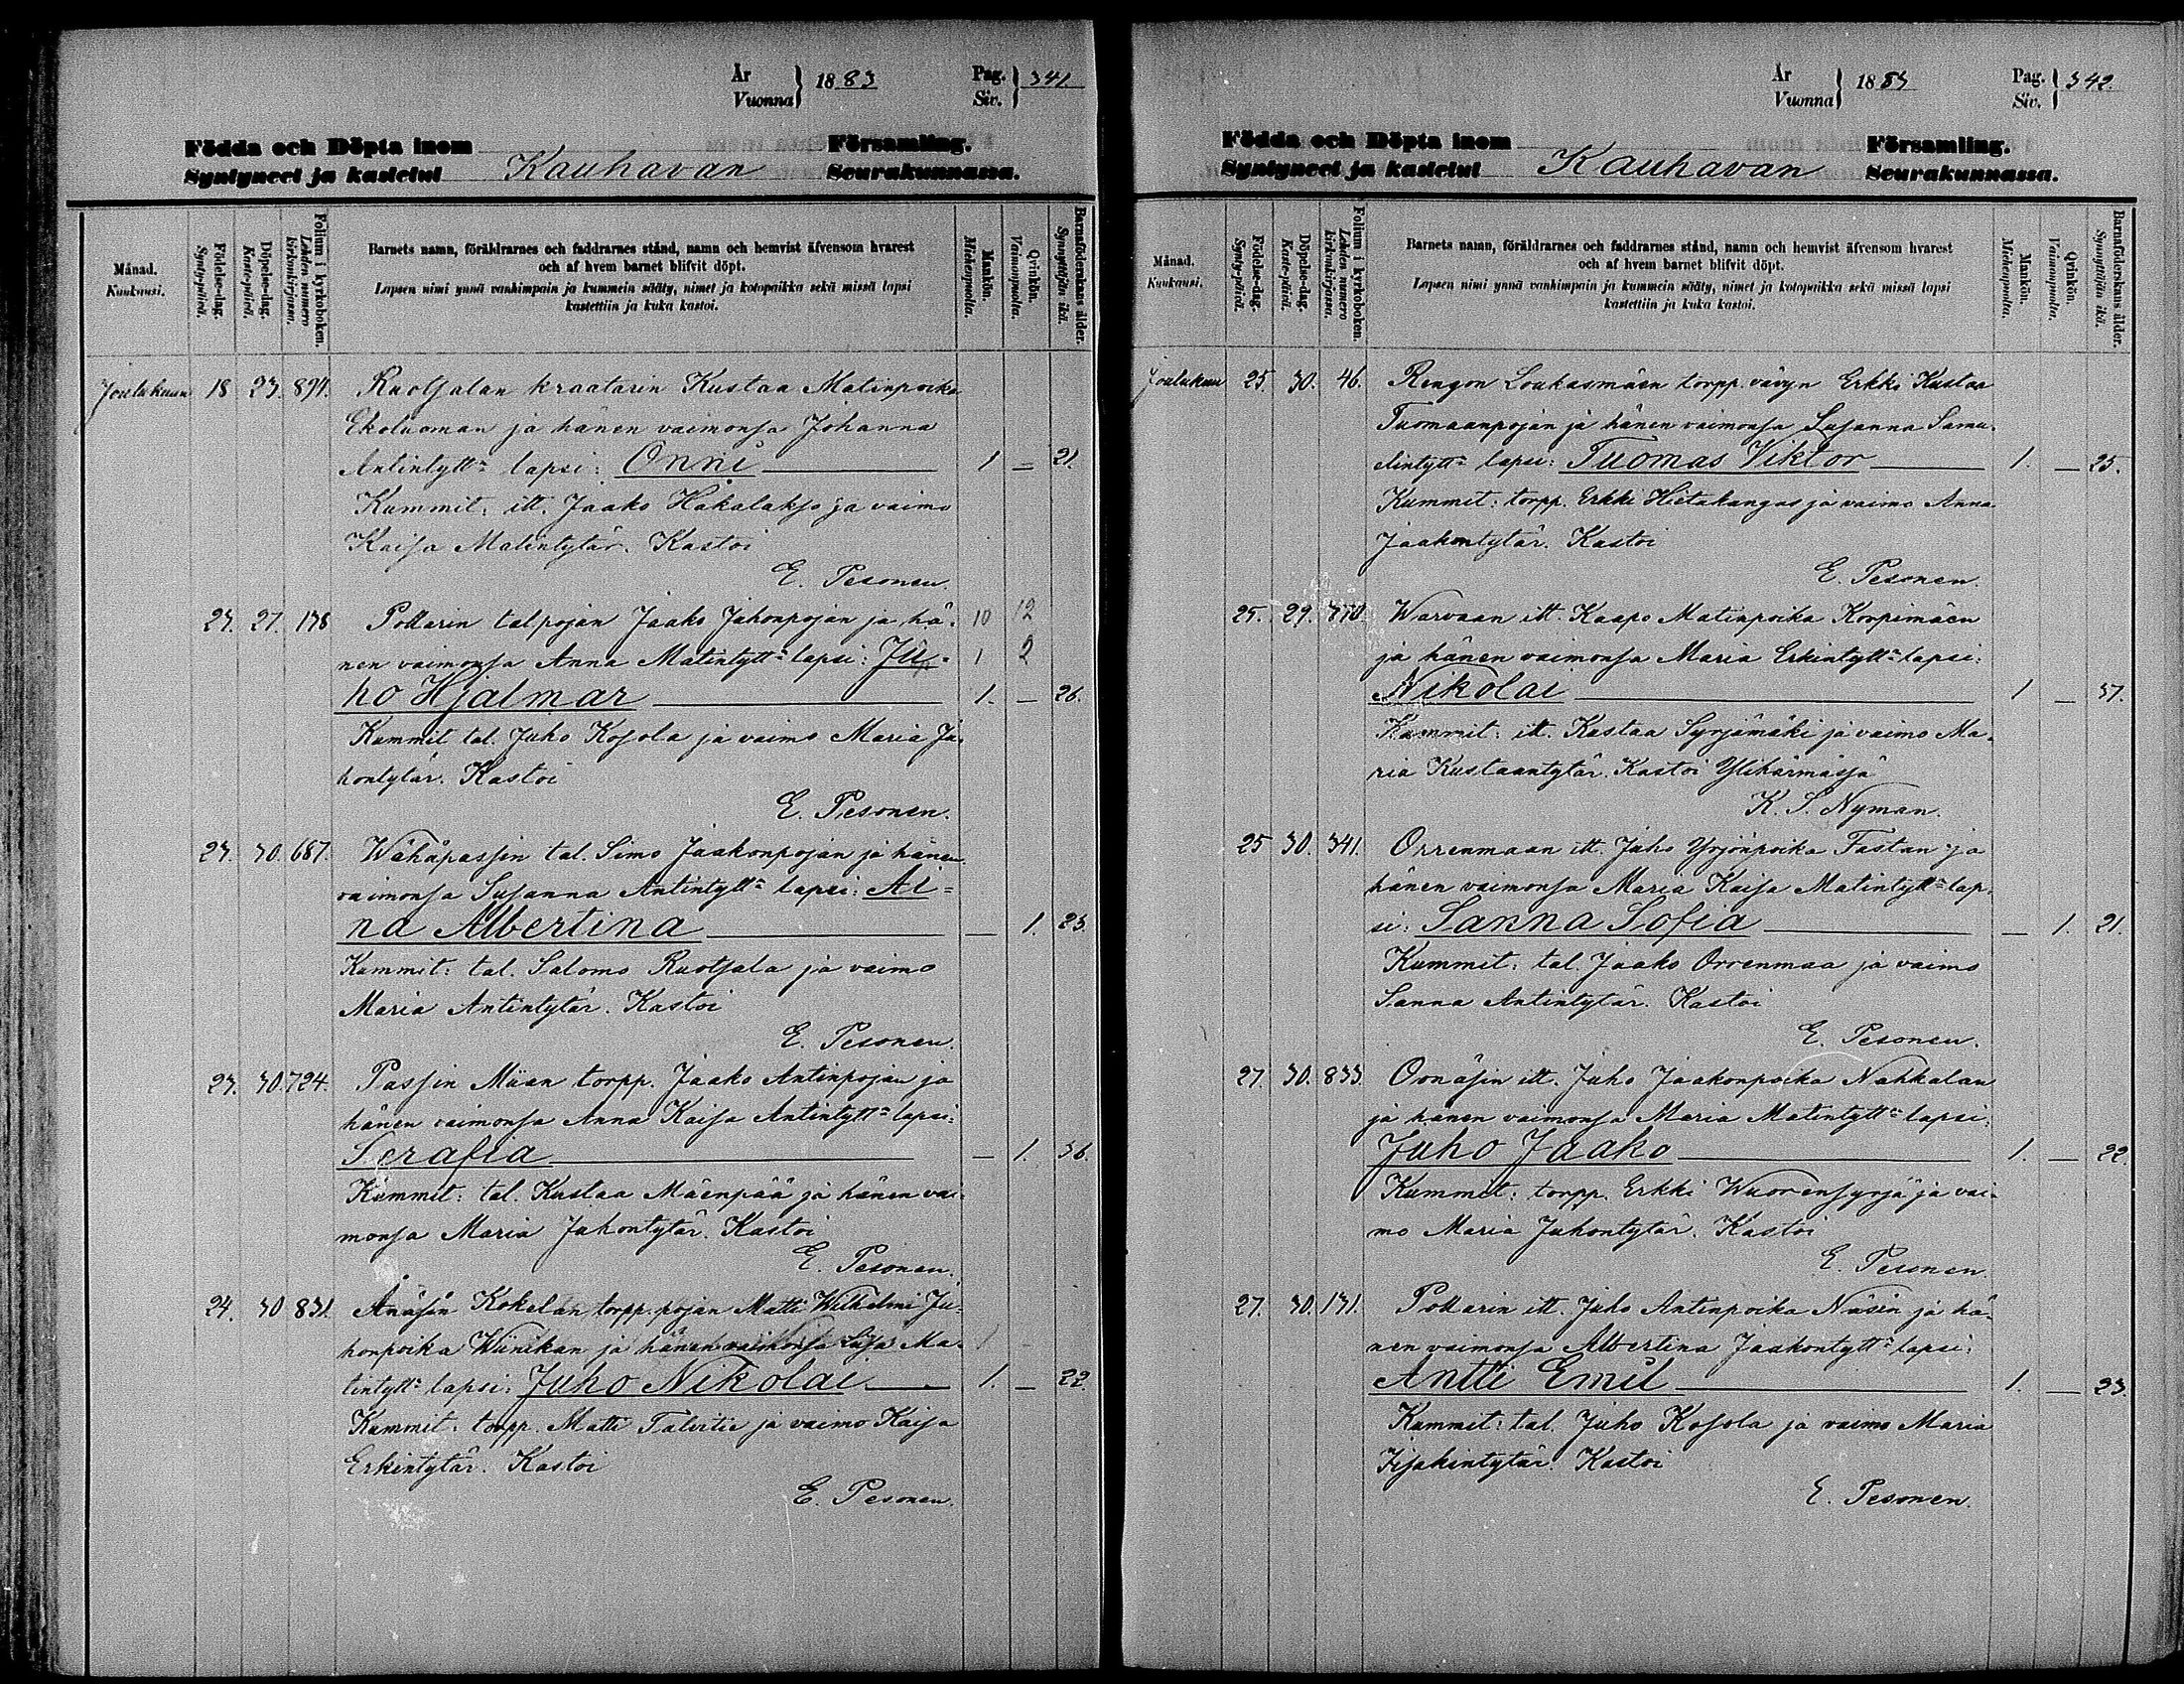 År
Vuonna } 1883 Pag.
Siv. } 341.
Födda och Döpta inom Församling.
Syntyneet ja kastetut Kauhavan Seurakunnassa.
Månad.
Kuukausi.
Födelse-dag.
Synty-päivä.
Döpelse-dag.
Kaste-päivä.
Folium i kyrkoboken.
Lehden numero kirkonkirjassa.
Barnets namn, föräldrarnes och faddrarnes stånd, namn och hemvist äfvensom hvarest
och af hvem barnet blifvit döpt.
Lapsen nimi ynnä vanhimpain ja kummein sääty, nimet ja kotopaikka sekä missä lapsi
kastettiin ja kuka kastoi.
Mankön.
Miehenpuolia.
Qvinkön.
Vaimonpuolia.
Barnaföderskans ålder.
Synnyttäjän ikä.
Joulukuun 18 23. 894. Ruotsalan kraatarin Kustaa Matinpoika
Ekoluoman ja hänen vaimonsa Johanna
Antintytt= lapsi: Onni 1 — 21.
Kummit: itt. Jaako Hakalakso ja vaimo
Kaisa Matintytär. Kastoi
E. Pesonen.
23. 27. 138 Pollarin tal pojan Jaako Juhonpojan ja hä- 10 12
nen vaimonsa Anna Matintytt= lapsi: Ju- 1 2
ho Hjalmar 1. — 26.
Kummit tal. Juho Kosola ja vaimo Maria Ju-
hontytär. Kastoi
E. Pesonen.
23. 30. 687. Wähäpassin tal. Simo Jaakonpojan ja hänen
vaimonsa Susanna Antintytt= lapsi: Al=
na Albertina — 1. 23.
Kummit: tal. Salomo Ruotsala ja vaimo
Maria Antintytär. Kastoi
E. Pesonen.
23. 30. 724. Passin Miian torpp. Jaako Antinpojan ja
hänen vaimonsa Anna Kaisa Antintytt= lapsi:
Serafia — 1. 36.
Kummit: tal. Kustaa Mäenpää ja hänen vai-
monsa Maria Juhontytär. Kastoi
E. Pesonen.
24. 30 831. Ånäsin Kokelan torpp. pojan Matti Wilhelmi Ju-
honpoika Wiinikan ja hänen vaimonsa Liisa Ma-
tintytt= lapsi: Juho Nikolai 1. — 22.
Kummit: torpp. Matti Talvitie ja vaimo Kaisa
Erkintytär. Kastoi
E. Pesonen.
År
Vuonna } 1883 Pag.
Siv. } 342.
Födda och Döpta inom Församling.
Syntyneet ja kastetut Kauhavan Seurakunnassa.
Månad.
Kuukausi.
Födelse-dag.
Synty-päivä.
Döpelse-dag.
Kaste-päivä.
Folium i kyrkoboken.
Lehden numero kirkonkirjassa.
Barnets namn, föräldrarnes och faddrarnes stånd, namn och hemvist äfvensom hvarest
och af hvem barnet blifvit döpt.
Lapsen nimi ynnä vanhimpain ja kummein sääty, nimet ja kotopaikka sekä missä lapsi
kastettiin ja kuka kastoi.
Mankön.
Miehenpuolia.
Qvinkön.
Vaimonpuolia.
Barnaföderskans ålder.
Synnyttäjän ikä.
Joulukuu 25. 30. 46. Rengon Loukasmäen torpp. vävyn Erkki Kustaa
Tuomaanpojan ja hänen vaimonsa Susanna Samu-
elintytt= lapsi: Tuomas Viktor 1. — 25.
Kummit: torpp. Erkki Hietakangas ja vaimo Anna
Jaakontytär. Kastoi
E. Pesonen.
25. 29. 770. Warvaan itt. Kaapo Matinpoika Korpimäen
ja hänen vaimonsa Maria Erkintytt= lapsi:
Nikolai 1 — 37.
Kummit: itt. Kustaa Syrjämäki ja vaimo Ma-
ria Kustaantytär. Kastoi Ylihärmässä
K. S. Nyman.
25 30. 341. Orrenmaan itt. Juho Yrjönpoika Fastan ja
hänen vaimonsa Maria Kaisa Matintytt= lap-
si: Sanna Sofia — 1. 21.
Kummit: tal. Jaako Orrenmaa ja vaimo
Sanna Antintytär. Kastoi
E. Pesonen.
27. 30. 833. Ånäsin itt. Juho Jaakonpoika Nahkalan
ja hänen vaimonsa Maria Matintytt= lapsi:
Juho Jaako 1. — 22.
Kummit: torpp. Erkki Wuorensyrjä ja vai-
mo Maria Juhontytär. Kastoi
E. Pesonen.
27. 30. 131. Pollarin itt. Juho Antinpoika Näsin ja hä-
nen vaimonsa Albertina Jaakontytt= lapsi:
Antti Emil 1. — 23.
Kummit: tal. Juho Kosola ja vaimo Maria
Iisakintytär. Kastoi
E. Pesonen.